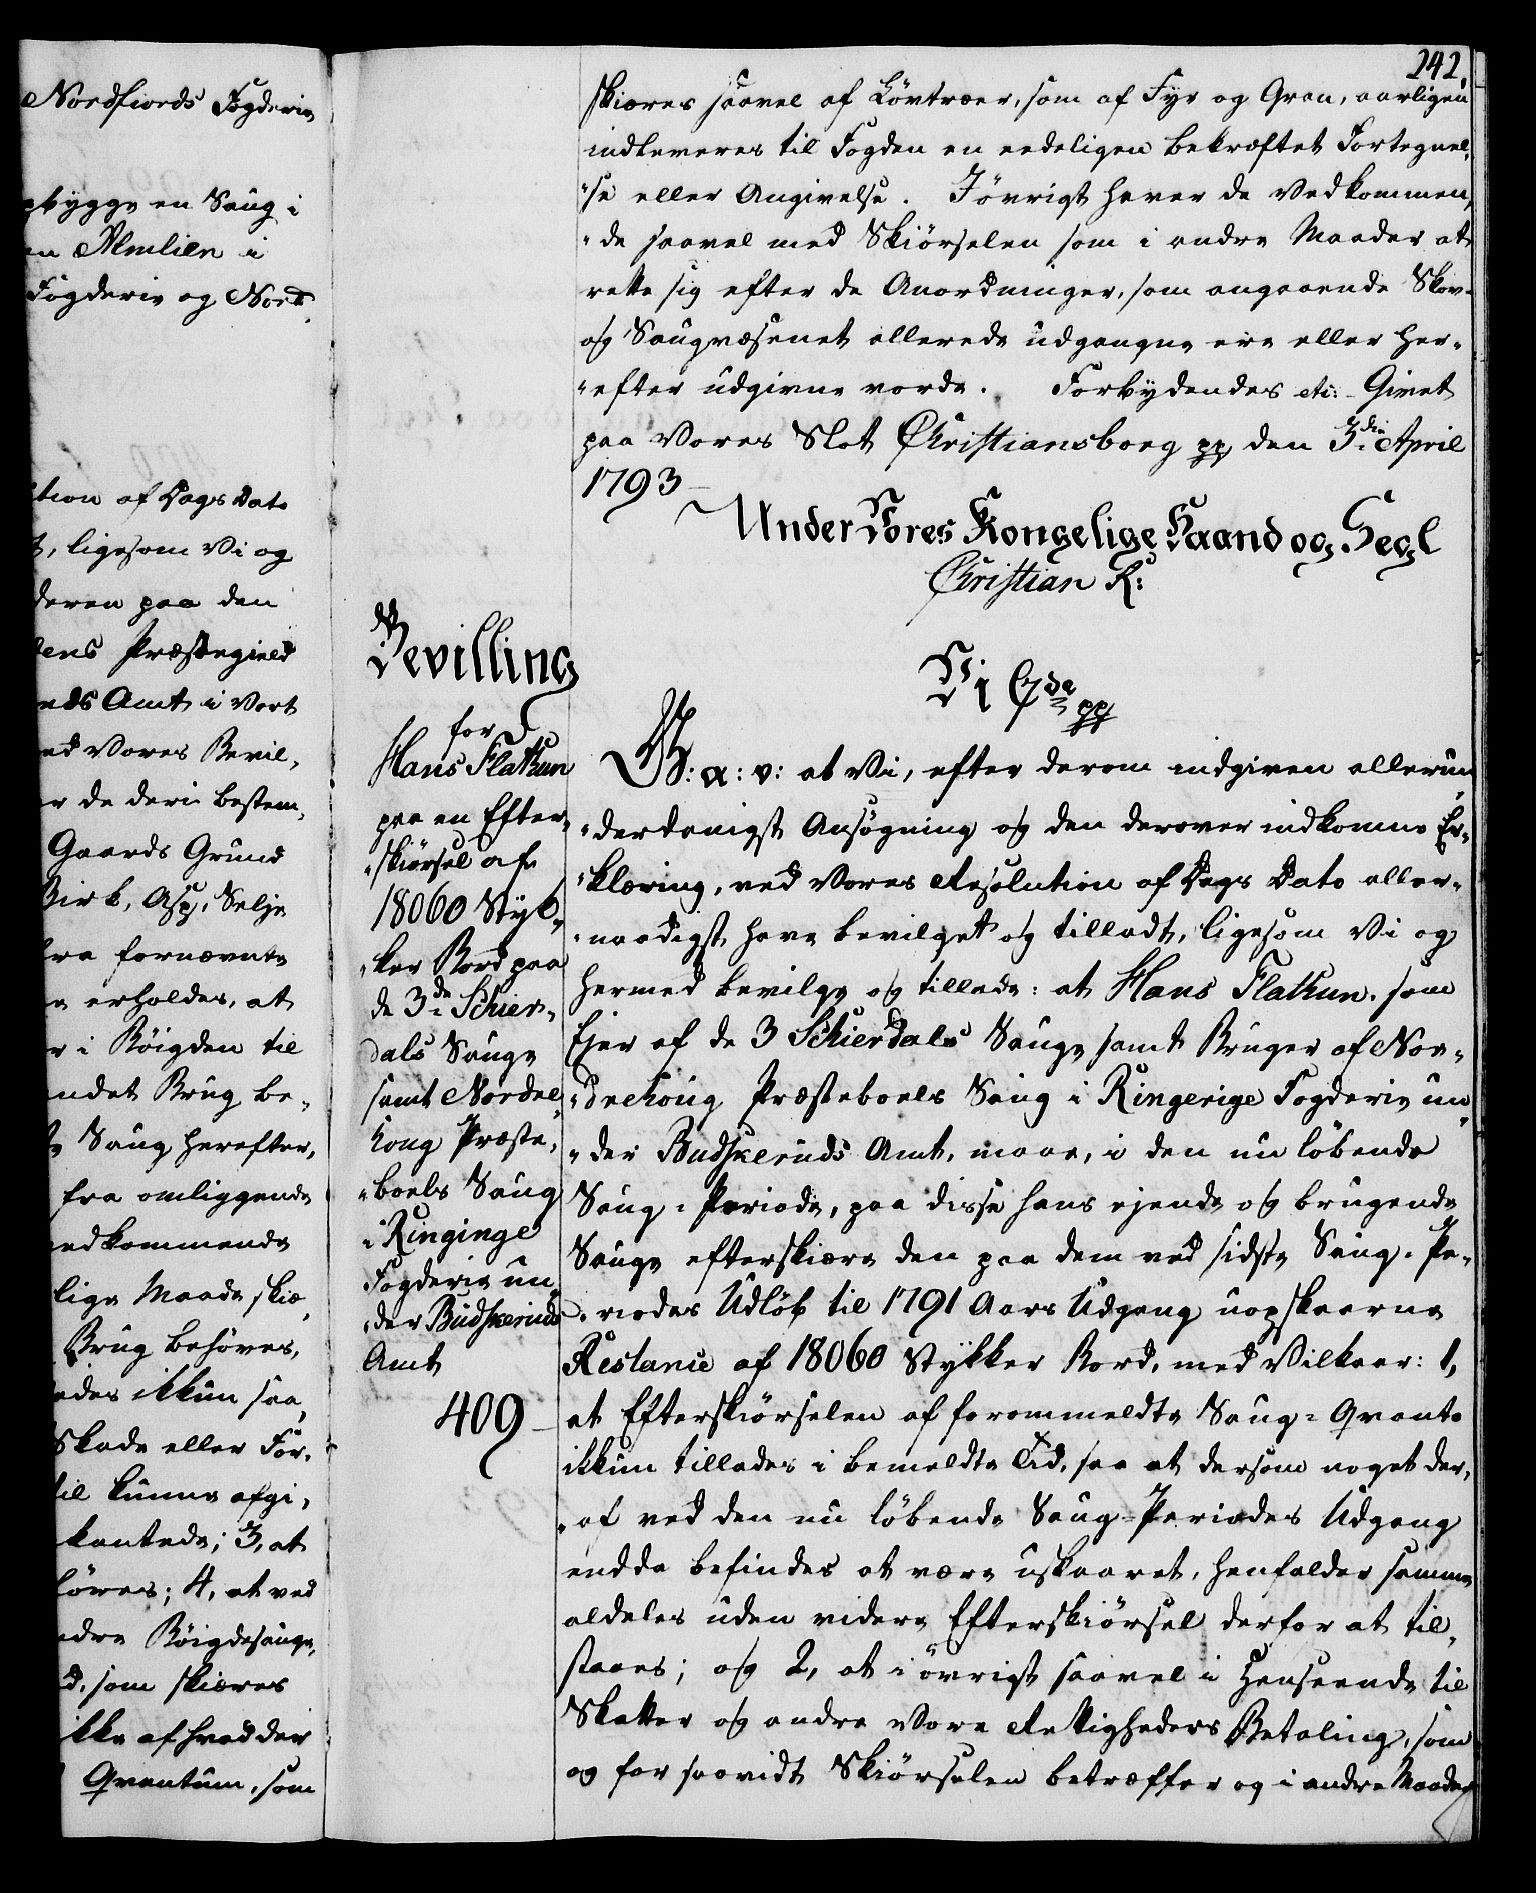 Nordfiords Fogderie
bygge en Saug i
Almlien i
Fogderie og Nord
af Dags Dato
ligesom Vi og
paa den
Præstegield
Amt i Vort
Vores Bevil,
de deri bestem,
Gaards Grund
Birk, Asp, Selje
fra fornævnte
erholdes, at
i Bøigden til
Brug be„
Saug herefter,
fra omliggende
Vedkommende
lige Maade skiæ„
Brug behøves,
ikkun saa„
Skade eller For„
til kunne afgi„
3, at
4, at ved
Bøigdesauge,
som skiæres
ikke af hvad der
Qvantum, som
242.
skiæres saavel af Løvtræer, som af Fyr og Gran, aarligen
indleveres til Fogden en eedeligen bekræftet Fortegnel„
„se eller Angivelse. Iøvrigt haver de Vedkommen„
„de saavel med Skiørselen som i andre Maader at
rette sig efter de Anordninger, som angaaende Skov-
og Saugvæsenet allerede udgangne ere eller her„
„efter udgivne vorde. Forbydendes etc: Givet
paa Vores Slot Christiansborg pp den 3die April
1793
Under Vores Kongelige Haand og Segl
Christian R:
Bevilling
for
Hans Flathun
paa en Efter„
„skiørsel af
18060 Styk„
„ker Bord paa
de 3de Schier„
dals Sauge
samt Norde„
houg Præste„
„boels Saug
i Ringinge
Fogderie un„
„der Budskeruds
Amt
409
Vi C7de pp
G: a: v: at Vi, efter derom indgiven allerun„
„derdanigst Ansøgning og den derover indkomne Er„
„klæring, ved Vores Resolution af Dags Dato aller„
„naadigst have bevilget og tilladt, ligesom Vi og
hermed bevilge og tillade: at Hans Flathun, som
Ejer af de 3 Schierdals Sauge samt Bruger af Nor„
„drehoug Præsteboels Saug i Ringerige Fogderie un„
„der Budskeruds Amt, maae, i den nu løbende
Saug-Periode, paa disse hans ejende og brugende
Sauge efterskiære den paa dem ved sidste Saug-Pe„
„riodes Udløb til 1791 Aars Udgang uopskaarne
Restance af 18060 Stykker Bord, med Vilkaar: 1,
at Efterskiørselen af forommeldte Saug-Qvanto
ikkun tillades i bemeldte Tid, saa at dersom noget der„
„af ved den nu løbende Saug-Periodes Udgang
endda befindes at være uskaaret, henfalder samme
aldeles uden videre Efterskiørsel derfor at til„
staaes; og 2, at i øvrigt saavel i Henseende til
Skatter og andre Vore Rettigheders Betaling, som
og for saavidt Skiørselen betræffer og i andre Maader